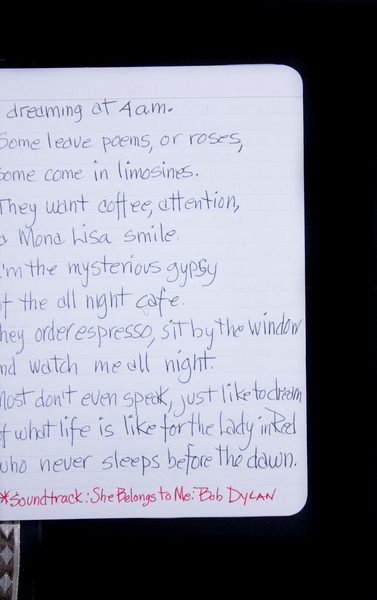 dreaming at 4am.
Some leave poems, or roses,
some come in limosines.
They want coffee, attention,
a Mona Lisa smile.
I'm the mysterious gypsy
of the all night cafe.
They order espresso, sit by the window
and watch me all night.
Most don't even speak, just like to dream
of what life is like for the Lady in Red
who never sleeps before the dawn.
*Soundtrack: She Belongs to Me: Bob DYLAN